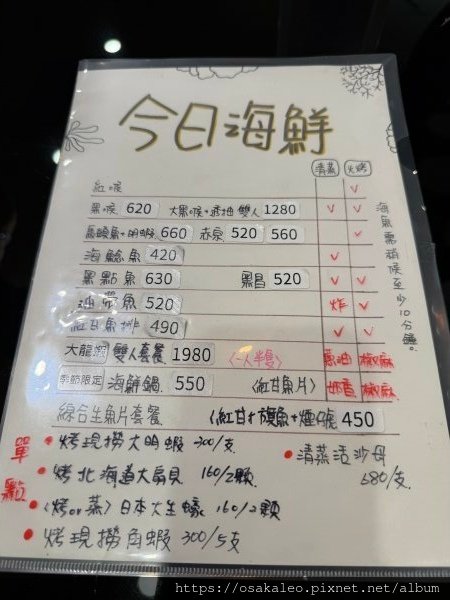 今日海鮮
清蒸 火烤
紅喉 v
黑喉 620 大黑喉+透抽 雙人 1280 v v
馬頭魚+明蝦 660 赤宗 520 560 v
海鯰魚 420 v
黑點魚 630 黑昌 520 v v
油帶魚 520 炸 v
紅甘魚排 490 v v
大龍蝦 雙人套餐 1980 <一人半隻> 蔥油 椒麻
季節限定 海鮮鍋 550 <紅甘魚片> 椒麻
綜合生魚片套餐 <紅甘+旗魚+煙鮭 450
海魚需稍候至少10分鐘。
單點
• 烤現撈大明蝦 300/支
• 清蒸活沙母 680/支
• 烤北海道大扇貝 160/2顆
• <烤or蒸>日本大生蠔 160/2顆
• 烤現撈角蝦 300/5支
https://osakaleo.pixnet.net/album